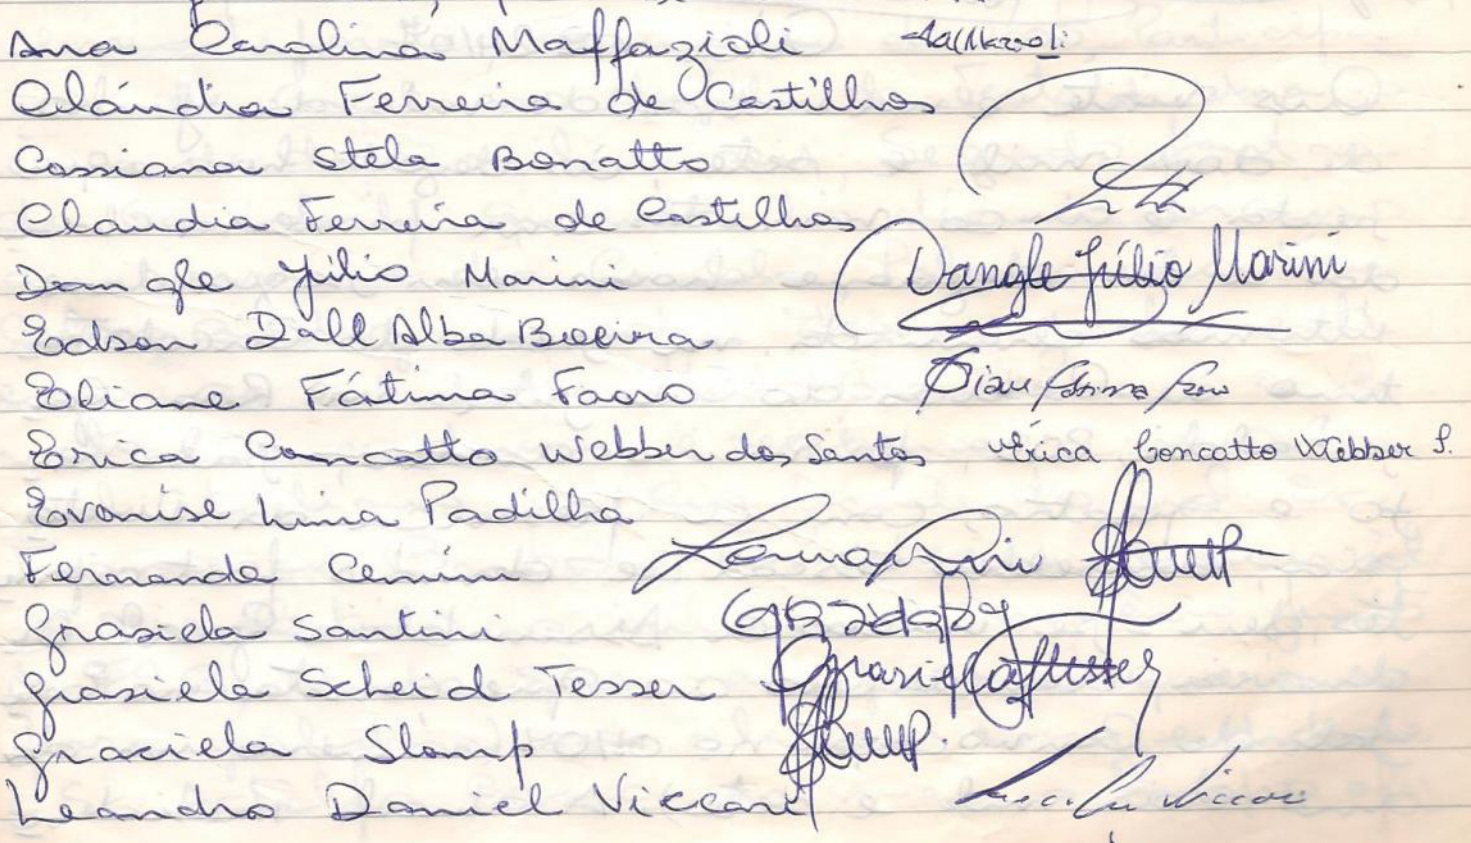 Ana Carolina Maffazioli
Cláudia Ferreira de Castilhos
Cassiana Stela Bonatto
Claudia Ferreira de Castilhos
Dangle Júlio Marini Dangle Júlio Marini
Edson Dall Alba
Eliane Fátima Faoro
Erica Concatto Webber dos Santos Érica Concatto Webber S.
Evanise Lima Padilha
Fernanda Cemin
Grasiela Santini
Grasiela Scheid Tesser
Graciela Slomp
Leandro Daniel Viccari